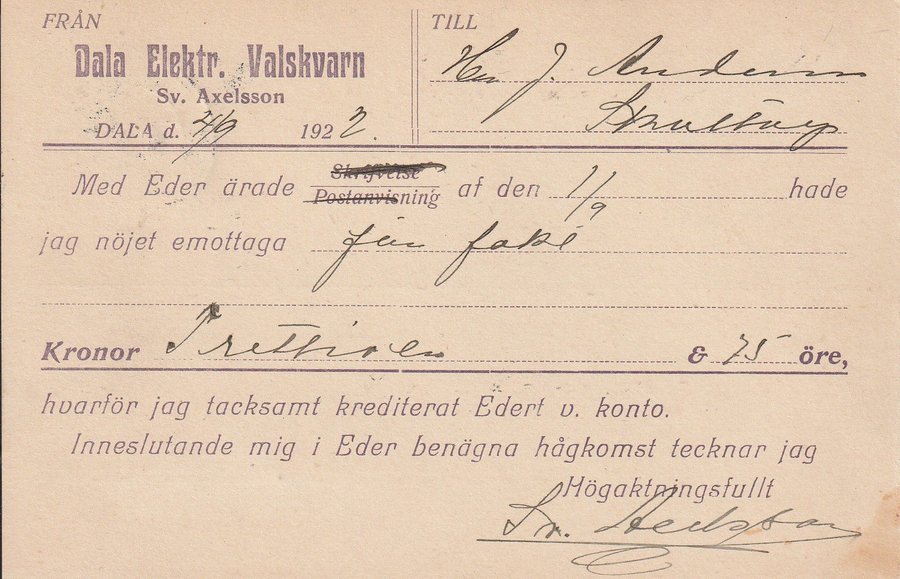 FRÅN
Dala Elektr. Valskvarn
Sv. Axelsson
DALA d. 2/9 1922.
TILL
Herr J. Anderson
Med Eder ärade Skrifvelse Postanvisning af den 11/9 hade
jag nöjet emottaga
Kronor Trettioen & 75 öre,
hvarför jag tacksamt krediterat Edert v. konto.
Inneslutande mig i Eder benägna hågkomst tecknar jag
Högaktningsfullt
Sv. Axelsson